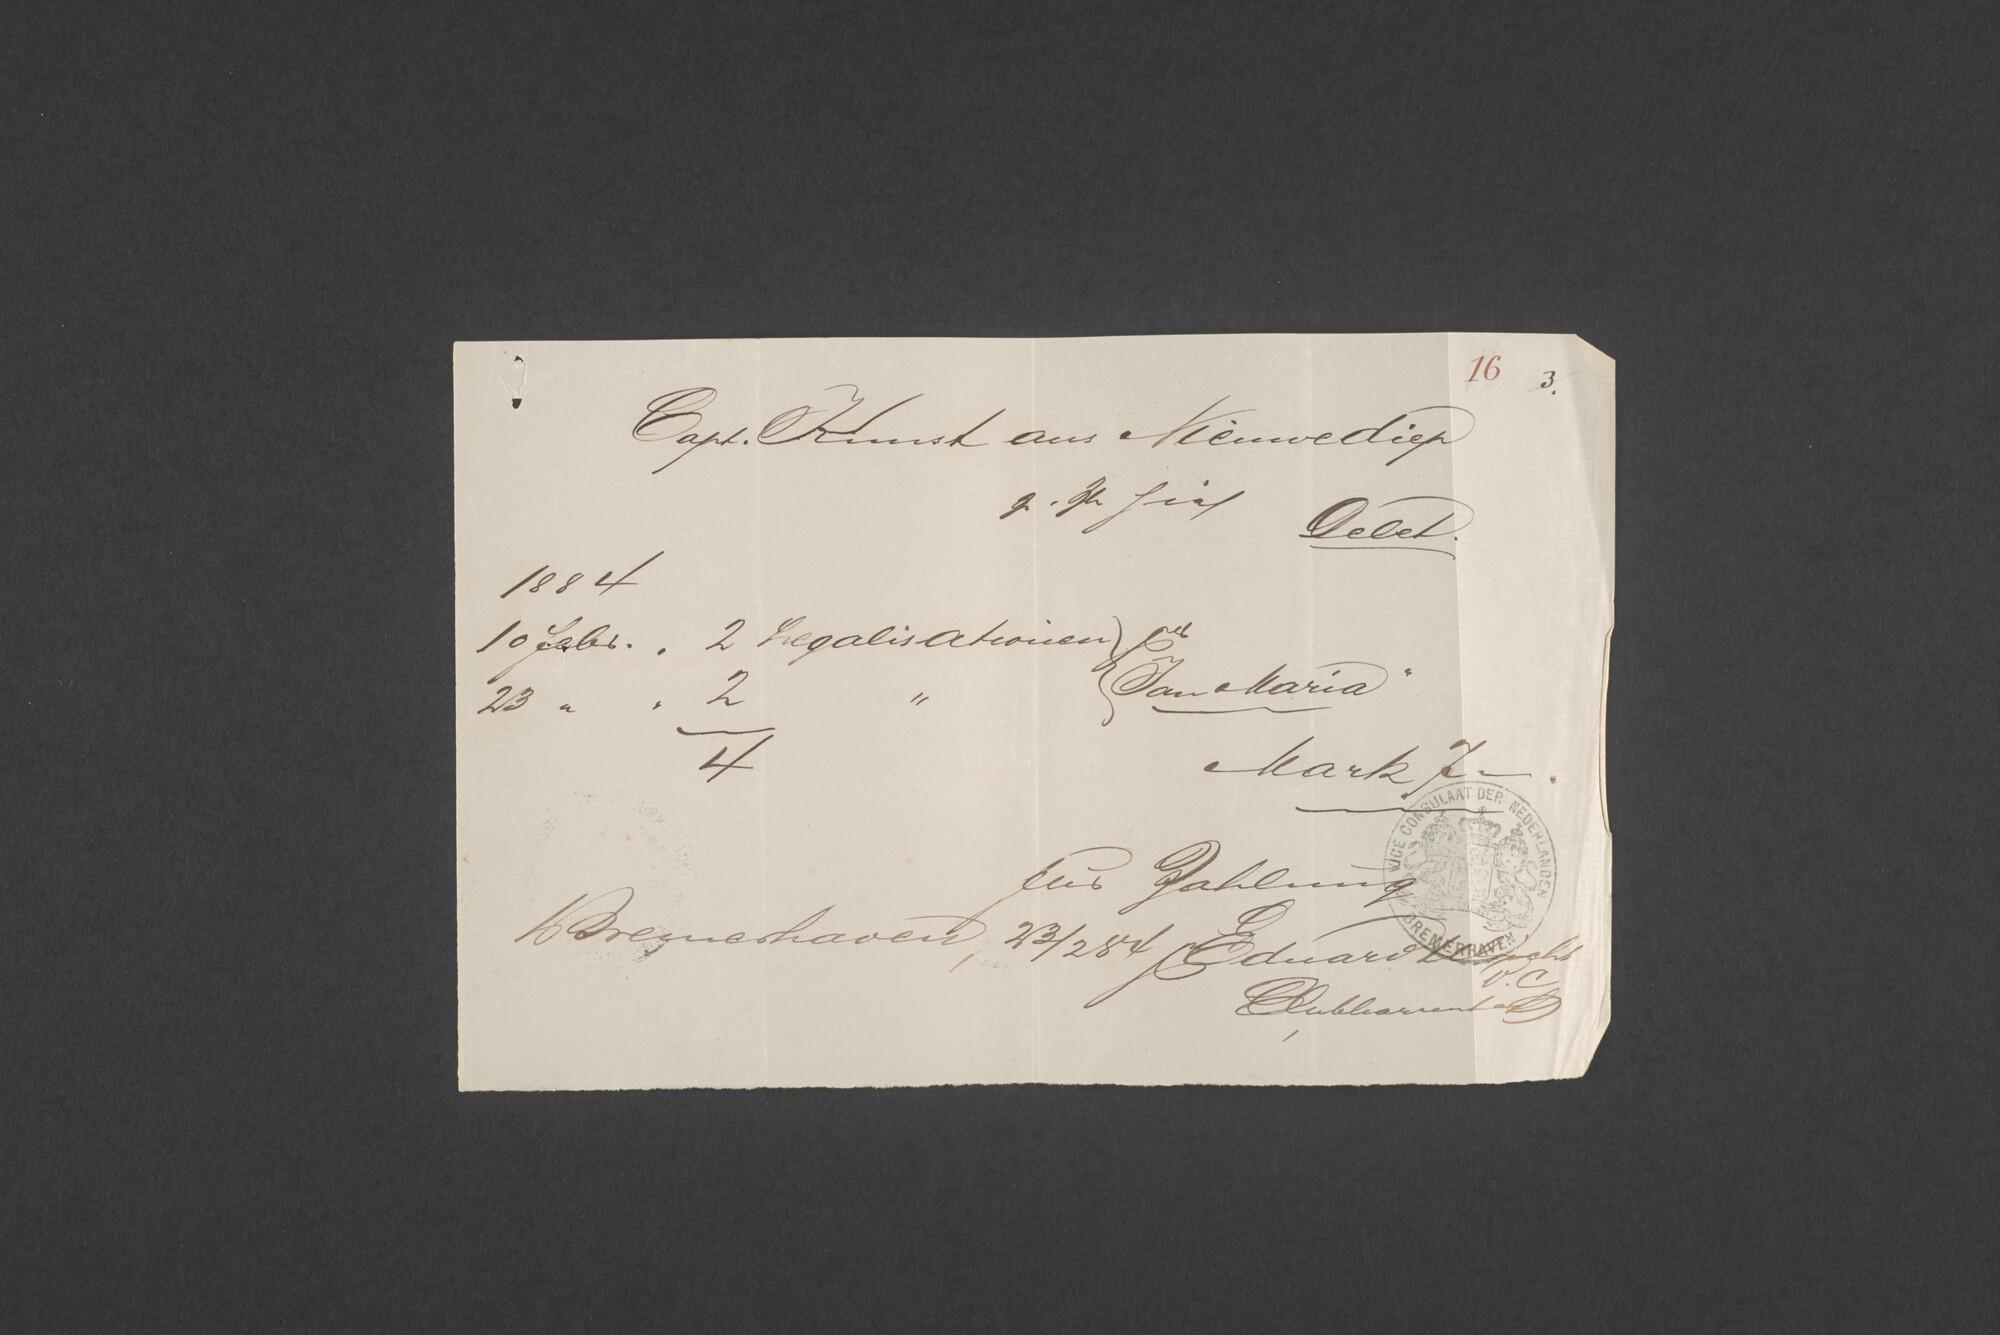 16 3.
Capt. Kunst aus Nieuwediep
Debet.
1884
10 febr. " 2 Legalisationen
23 " " 2 " "Jan Maria"
4
Mark 7 —
VICE CONSULAAT DER NEDERLANDEN
BREMERHAVEN
für Zahlung
Bremerhaven, 23/2 84 Eduard
V. C.